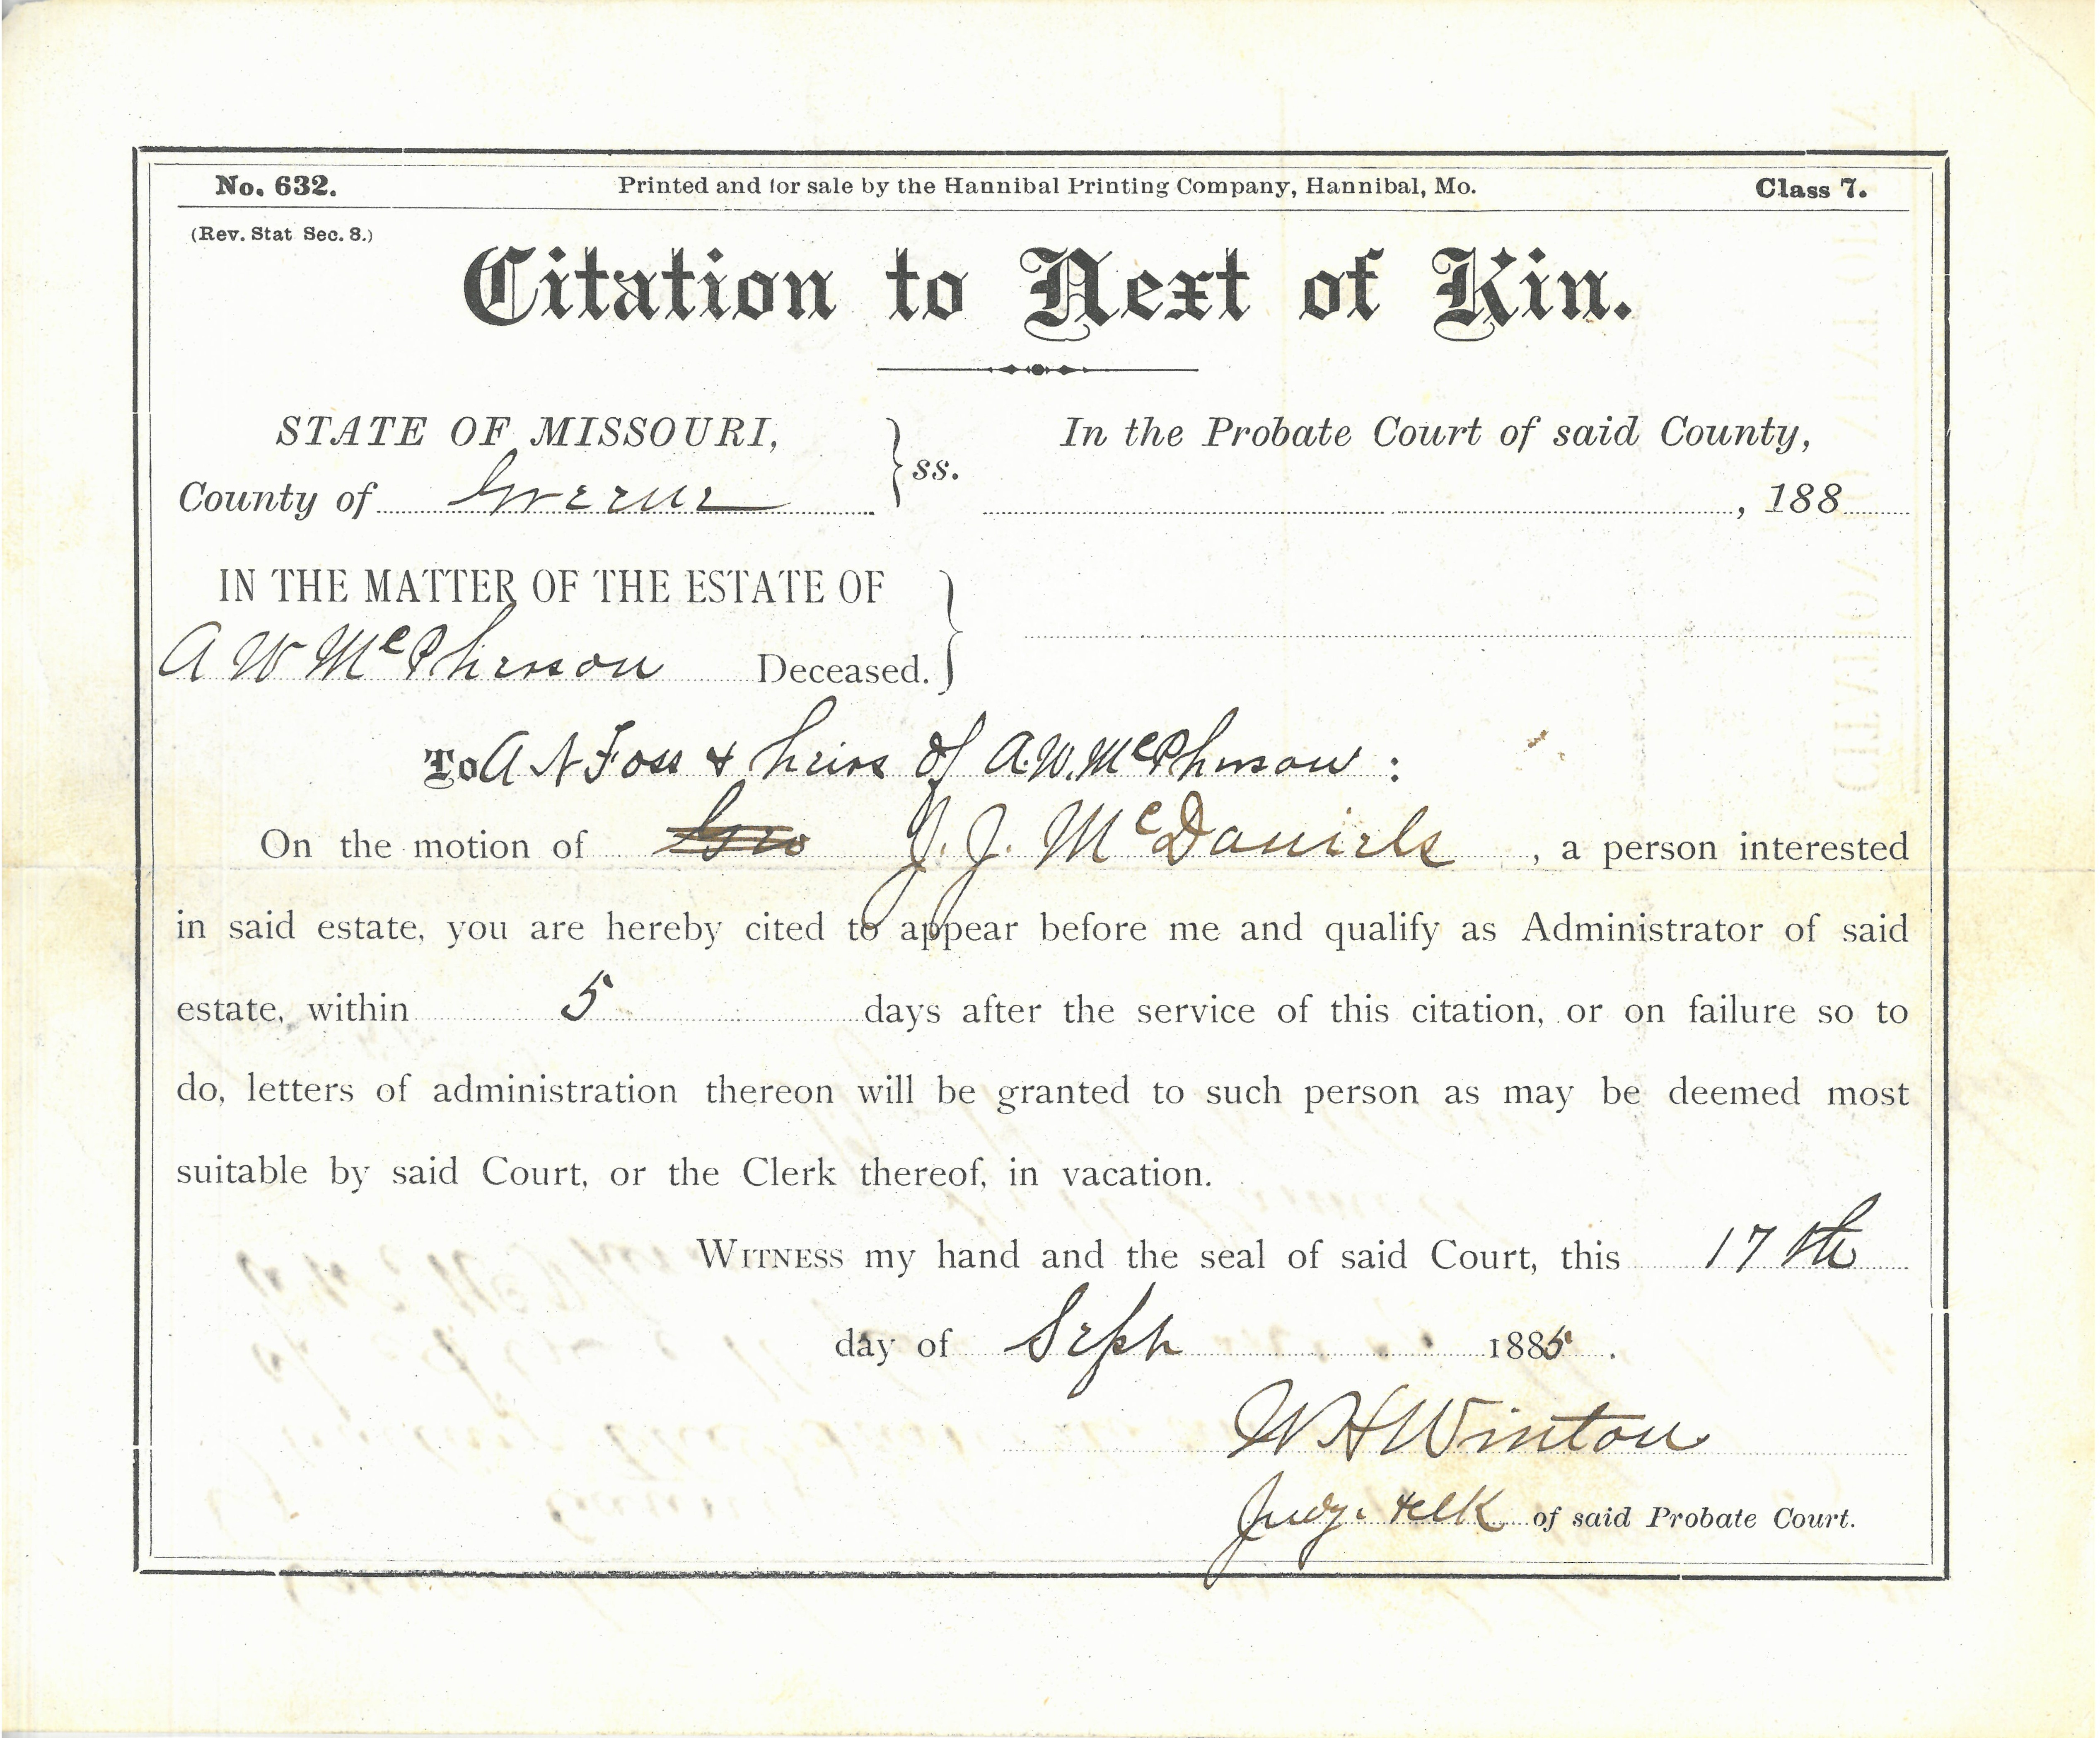 No. 632.    Printed and for sale by the Hannibal Printing Company, Hannibal, Mo.    Class 7.
(Rev. Stat Sec. 8.)
Citation to Next of Kin.
STATE OF MISSOURI,    In the Probate Court of said County,
County of Greene ss.    , 188
IN THE MATTER OF THE ESTATE OF
A W McPherson Deceased.
To A N Foss & heirs of A.W. McPherson :
On the motion of Geo J. J. McDaniels , a person interested
in said estate, you are hereby cited to appear before me and qualify as Administrator of said
estate, within 5 days after the service of this citation, or on failure so to
do, letters of administration thereon will be granted to such person as may be deemed most
suitable by said Court, or the Clerk thereof, in vacation.
WITNESS my hand and the seal of said Court, this 17th
day of Sept 1885 .
W H Winton
Judge & clk of said Probate Court.